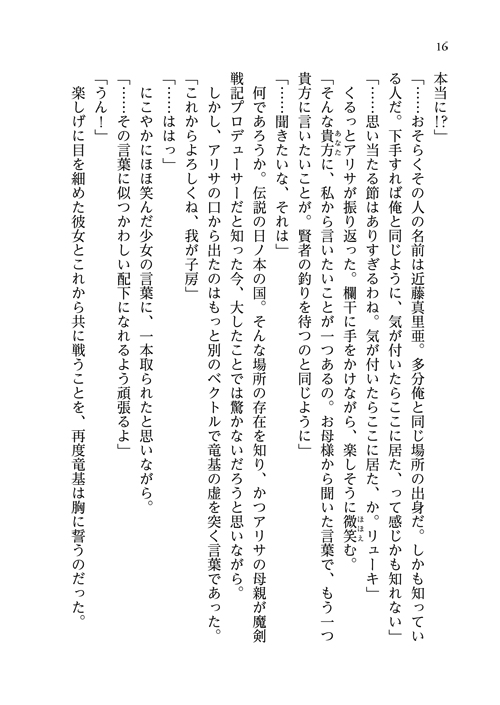 16
本当に!?」
「……おそらくその人の名前は近藤真里亜。多分俺と同じ場所の出身だ。しかも知ってい
る人だ。下手すれば俺と同じように、気が付いたらここに居た、って感じかも知れない」
「……思い当たる節はありすぎるわね。気が付いたらここに居た、か。リューキ」
くるっとアリサが振り返った。欄干に手をかけながら、楽しそうに微笑む。
「そんな貴方に、私から言いたいことが一つあるの。お母様から聞いた言葉で、もう一つ
貴方に言いたいことが。賢者の釣りを待つのと同じように」
「……聞きたいな、それは」
何であろうか。伝説の日ノ本の国。そんな場所の存在を知り、かつアリサの母親が魔剣
戦記プロデューサーだと知った今、大したことでは驚かないだろうと思いながら。
しかし、アリサの口から出たのはもっと別のベクトルで竜基の虚を突く言葉であった。
「これからよろしくね、我が子房」
「……ははっ」
にこやかにほほ笑んだ少女の言葉に、一本取られたと思いながら。
「……その言葉に似つかわしい配下になれるよう頑張るよ」
「うん！」
楽しげに目を細めた彼女とこれから共に戦うことを、再度竜基は胸に誓うのだった。